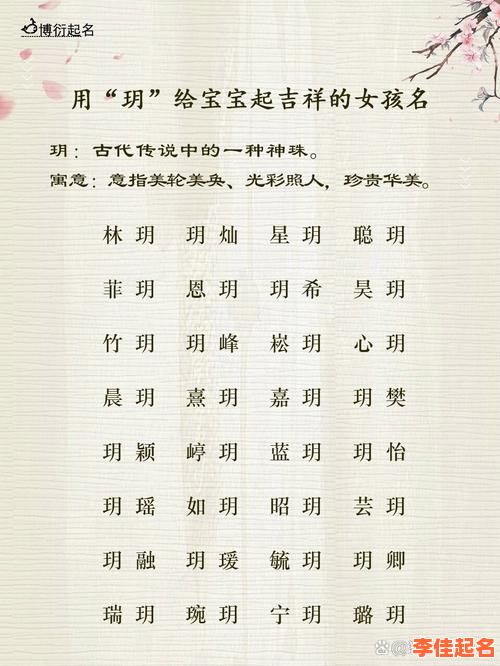 博衍起名
用“玥”给宝宝起吉祥的女孩名
玥：古代传说中的一种神珠。
寓意：意指美轮美奂、光彩照人，珍贵华美。
林玥 玥灿 星玥 聪玥
菲玥 恩玥 玥希 昊玥
竹玥 玥峰 崧玥 心玥
晨玥 熹玥 嘉玥 玥樊
玥颖 崞玥 蓝玥 玥怡
玥瑶 如玥 昭玥 芸玥
玥融 玥瑗 毓玥 玥卿
瑞玥 琬玥 宁玥 璐玥
李佳起名